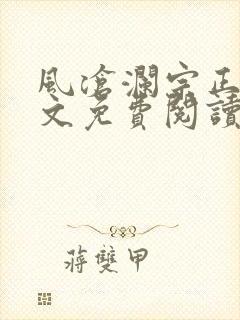 風滄瀾宗正
文免費閱讀
蔣雙甲